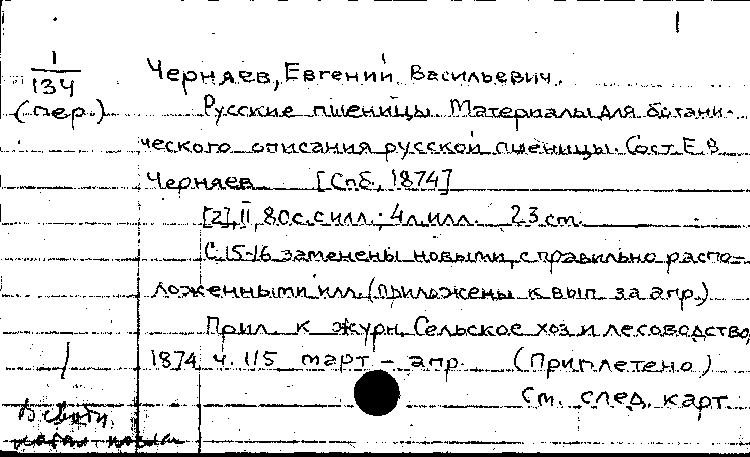 1
1
134
(пер.)
Черняев, Евгений Васильевич.
Русские пшеницы. Материалы для ботани-
ческого описания русской пшеницы. Сост. Е.В.
Черняев [Спб, 1874]
[2], II, 80с. с илл.; 4 л. илл. 23 cm.
С. 15-16 заменены новыми, с правильно распо-
ложенными илл. (приложены к вып. за апр.)
Прил. к журн. Сельское хоз и лесоводство,
1874 ч. 115 март – апр. (Приплетено)
См. след. карт